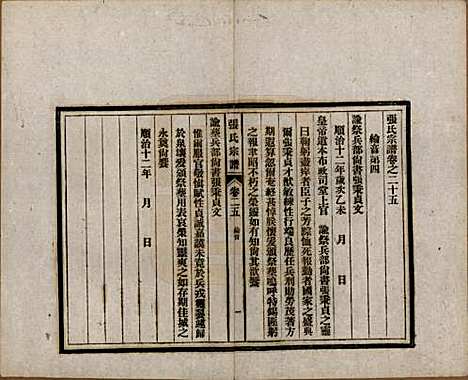 張氏宗譜卷之二十五
綸音第四
諭祭兵部尚書張秉貞文
順治十二年歲次乙未 月 日
皇帝遣本布政司堂上官 諭祭兵部尚書張秉貞之靈
曰鞠躬盡瘁臣子之芳踪恤死報勤者國家之盛典
爾張秉貞才猷敏練性行端良歷任兵刑勛勞茂著方
期遐算忽爾奄終甚悼朕懷爰頒祭葬嗚呼特錫匪躬
之報昭不朽之榮靈如有知尚其歆饗
諭葬兵部尚書張秉貞文
惟爾服官敬慎賦性貞誠嘉謨未竟於兵戎靈襲遽歸
於泉壤爰頒祭葬用表哀榮如靈爽之如存期佳城之
永奠尚饗
順治十二年 月 日
張氏宗譜
卷二五 綸音
一